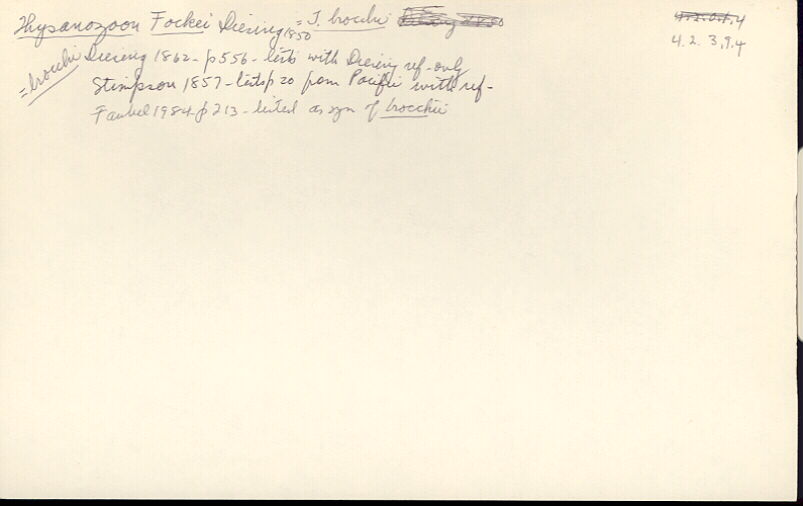 Thysanozoon Fockei Diesing 1850 = T. brocchi
4.2. 3,9.4
=brocchi Diesing 1862 - p 556 - lists with Diesing ref - only
Stimpson 1857 - lists p 20 from Pacific with ref -
Faubel 1984 - p 213 - listed as syn of brocchii